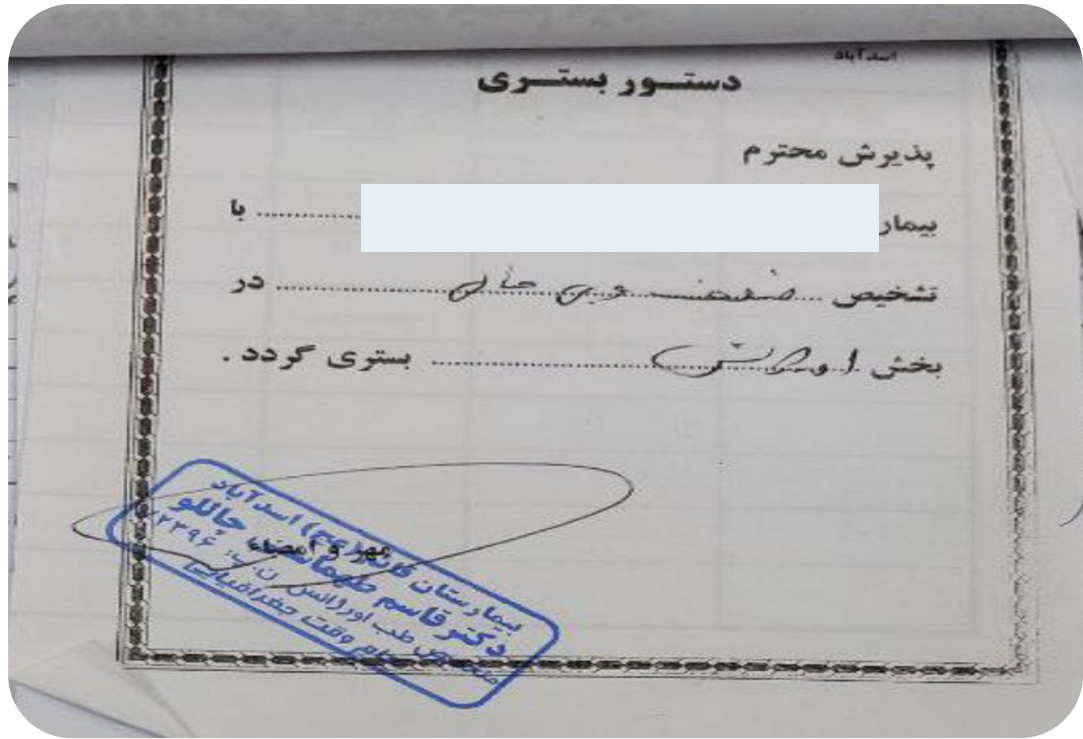 اسدآباد
دستور بستری
پذیرش محترم
بیمار ............ با
تشخیص ... ضعف و بی حالی ............ در
بخش اورژانس ............ بستری گردد .
مهر و امضاء
بیمارستان قائم (عج) اسدآباد
دکتر قاسم چاللو
متخصص طب اورژانس ن.پ:
تمام وقت جغرافیایی